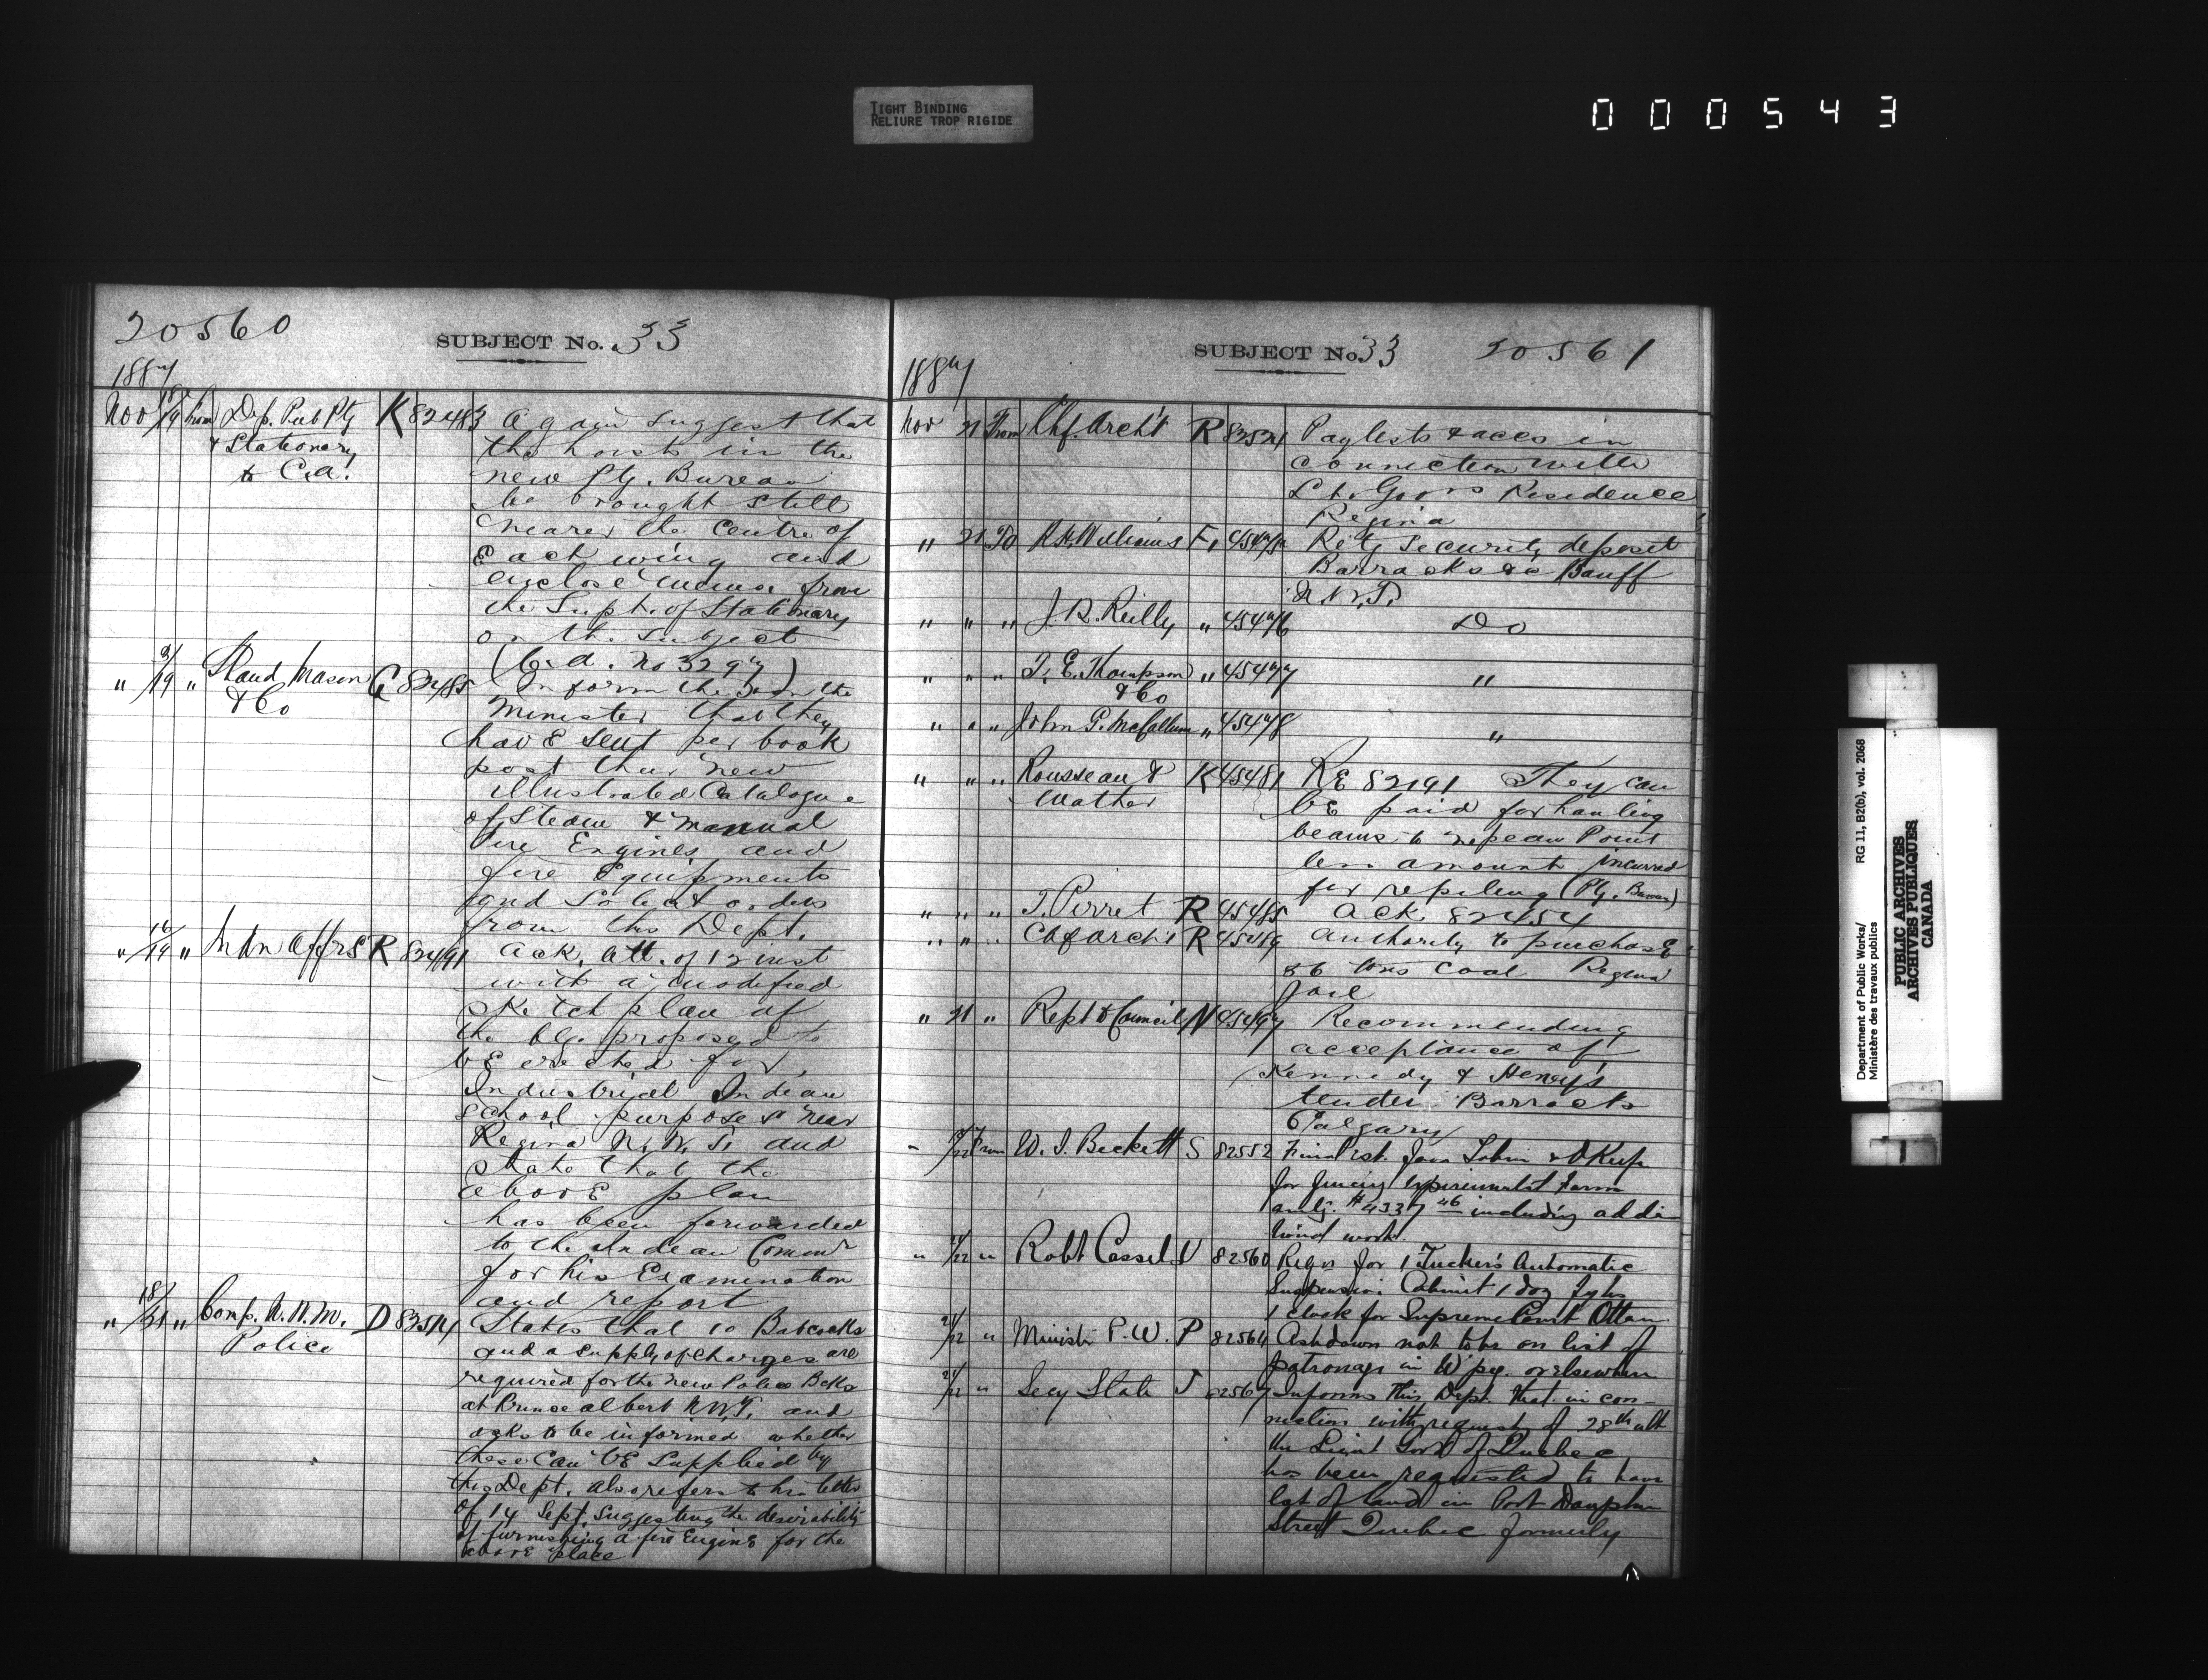 TIGHT BINDING
RELIURE TROP RIGIDE
000543
20560
SUBJECT No. 33
1887
Nov 18/19 from Dep. Pub Ptg K 82483 Again suggest that
& Stationery the hoist in the
to C.A. new Ptg. Bureau
be brought still
nearer the centre of
Each wing and
enclose memo. from
the Supt. of Stationery
on the subject
(C.A. No 3297)
" 3/19 " Shand Mason G 82485 Inform the the
& Co Minister that they
have sent per book
post their new
illustrated Catalogue
of Steam & Manual
Fire Engines and
fire Equipments
and Solicit orders
from this Dept.
" 16/19 " Indn Affrs R 82491 Ack. lett. of 12 inst
with a modified
sketch plan of
the blg. proposed to
be erected for
Industrial Indian
School purposes near
Regina N.W.T. and
state that the
above plan
has been forwarded
to the Indian Commr
for his Examination
and report
" 18/21 " Comp. N.W.M. D States that 10 Babcocks
Police and a supply of charges are
required for the new Police Bcks
at Prince Albert N.W.T. and
asks to be informed whether
these can be supplied by
this Dept. also refers to his letter
of 14 Sept. suggesting the desirability
of furnishing a fire Engine for the
above place
SUBJECT No 33 20561
1887
Nov 21 From Chf. Archt R Paylists & accs in
connection with
Lt. Govrs Residence
Regina
" 21 To Williams F. 45475 Retg security deposit
Barracks &c Banff
N.W.T.
" " " J. R. Reilly " 45476 Do
" " " T. E. Thompson " 45477 "
& Co
" " " John G. McCallum " 45478 "
" " " Rousseau & K 45481 RE 82191 They can
Mather be paid for hauling
beams to Nepean Point
less amount incurred
for repiling (Ptg. Bureau)
" " " T. Perret R 45485 Ack 82454
" " " Chf archt R 45489 authority to purchase
36 tons coal Regina
Jail
" 21 " Rept to Council N 45497 Recommending
acceptance of
Kennedy & Henry's
tender Barracks
Calgary
" From W. J. Beckett S 82552 Final est. favr Tobin & OKeefe
for fencing Experimental Farm
amtg. $4337 46 including addi-
tional work.
" 21/22 " Robt Cassels V 82560 Reqs for 1 Tucker's Automatic
Suspension Cabinet 1 doz
1 clock for Supreme Court Ottawa
" 21/22 " Minister P.W. P 82564 Ashdown not to be on list of
patronage in W'peg. or elsewhere
21/22 " Secy State J 82567 Informs this Dept. that in con-
nection with request of 28th ult
the Lieut Govr of Quebec
has been requested to have
lot of land in Port Dauphin
Street Quebec formerly
Department of Public Works/ RG 11, B2(b), vol. 2068
Ministère des travaux publics
PUBLIC ARCHIVES
ARCHIVES PUBLIQUES
CANADA